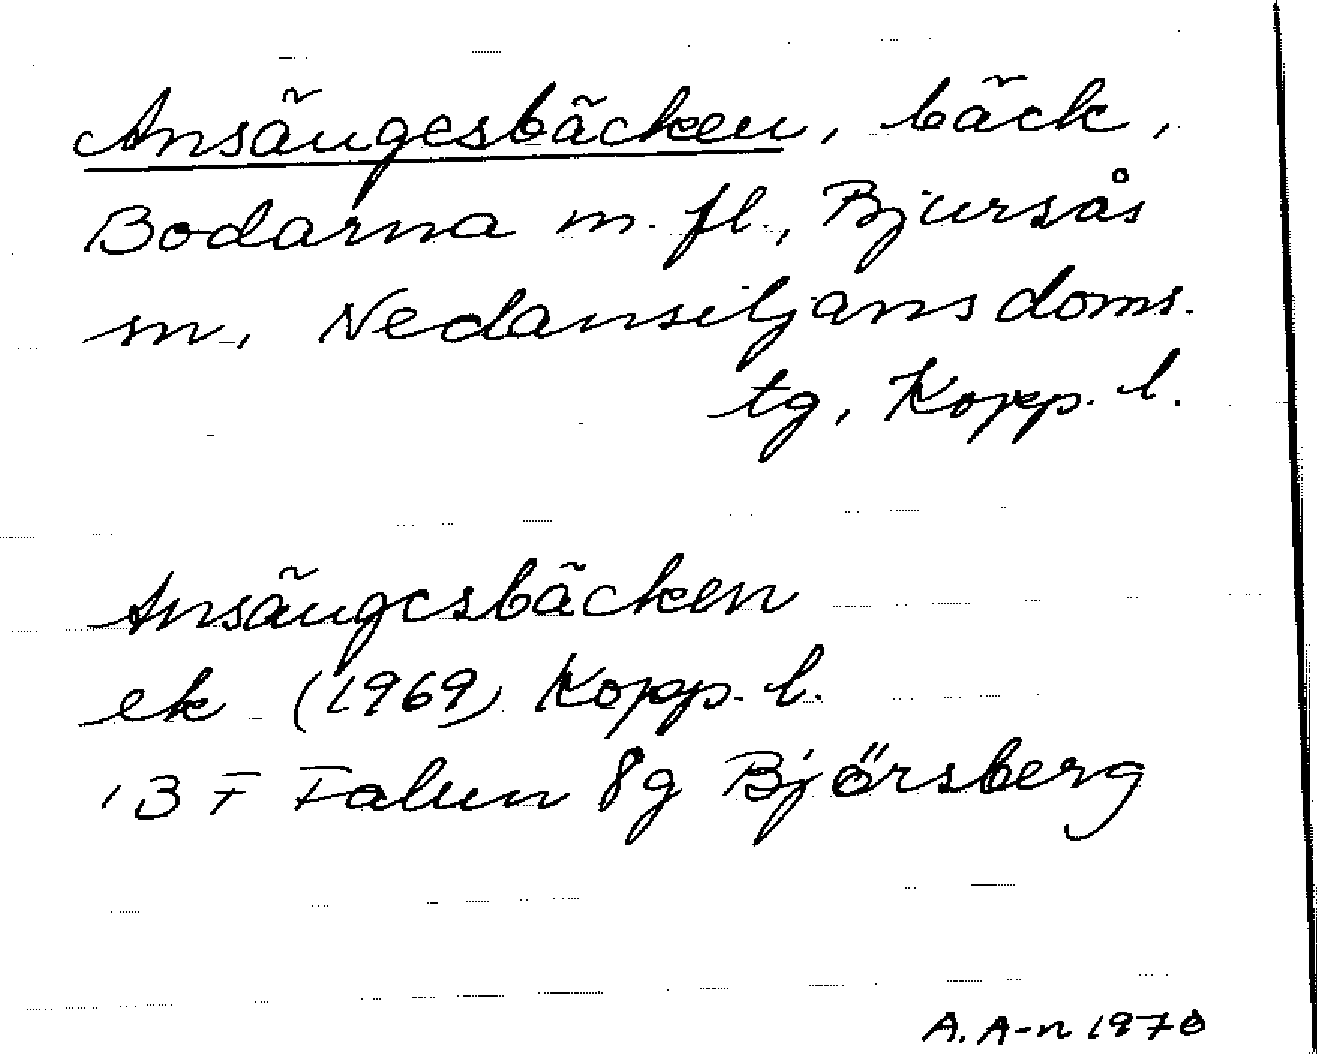 Ansängesbäcken, bäck,
Bodarna m. fl., Bjursås
sn, Nedansiljans doms.
tg, Kopp. l.
Ansängesbäcken
ek (1969) Kopp. l.
13 F Falun 8g Björsberg
A. A-n 1970